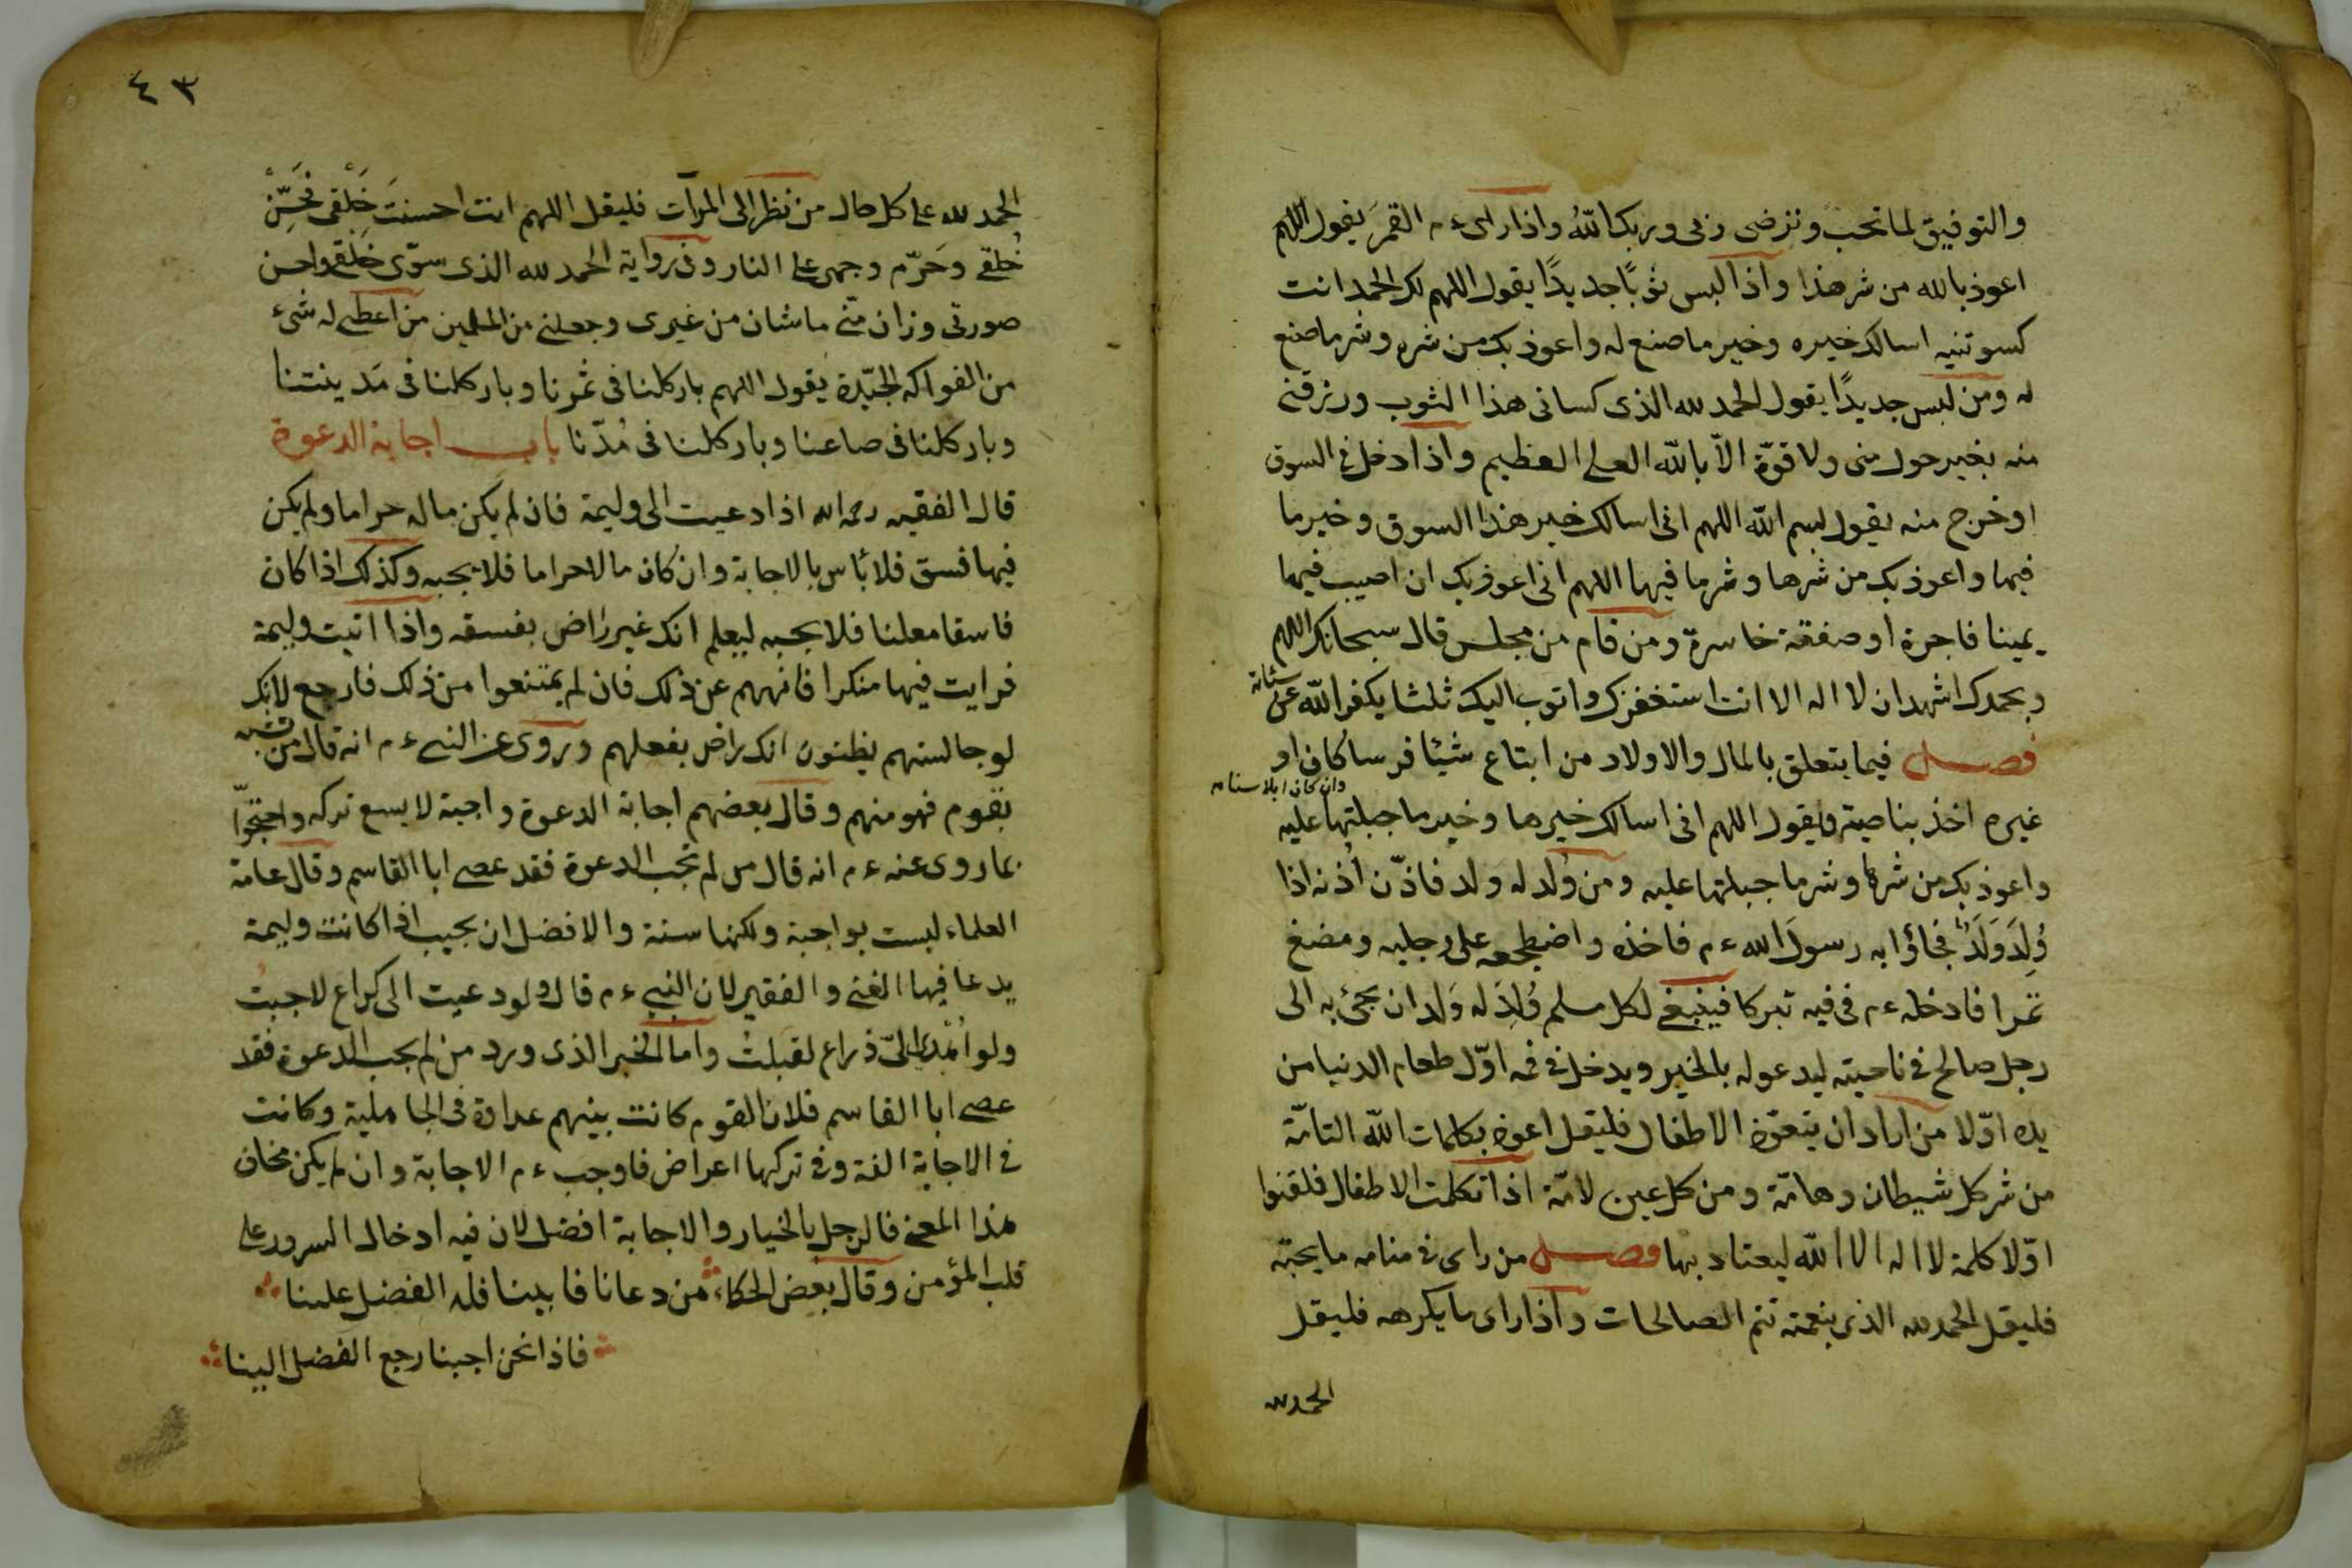 والتوفيق لما تحب وترضى ربى وربك الله واذا راى ء م القمر يقول اللهم
اعوذ بالله من شر هذا واذا لبس ثوبًا جديدًا يقول اللهم لك الحمد انت
كسوتنيه اسالك خيره وخير ما صنع له واعوذ بك من شره وشر ما صنع
له ومن لبس جديدًا يقول الحمد لله الذى كسانى هذا الثوب ورزقنى
منه بغير حول منى ولا قوّة الّا بالله العلى العظيم واذا دخل فى السوق
او خرج منه يقول بسم الله اللهم انى اسالك خير هذا السوق وخير ما
فيها واعوذ بك من شرها وشر ما فيها اللهم انى اعوذ بك ان اصيب فيها
يمينا فاجرة او صفقة خاسرة ومن قام من مجلس قال سبحانك اللهم
وبحمدك اشهد ان لا اله الا انت استغفرك واتوب اليك ثلثا يكفر الله عن
سيئاته
فصل فيما يتعلق بالمال والاولاد من ابتاع شيئا فرسا كان او
وان كان ابلا سنامه
غيره اخذ بناصيته ويقول اللهم انى اسالك خيرها وخير ما جبلتها عليه
واعوذ بك من شرها وشر ما جبلتها عليه ومن وُلد له ولد فاذّن اُذنه اذا
وُلِدَ وَلَدٌ فجاؤا به رسول الله ء م فاخذه واضطجعه على رجليه ومضغ
تمرا فادخله ء م فى فيه تبركا فينبغى لكل مسلم وُلِدَ له وَلد ان يجئ به الى
رجل صالح فى ناحيته ليدعو له بالخير ويدخل فى فمه اوّل طعام الدنيا من
يده اوّلا من اراد ان يتعوّذ الاطفال فليقل اعوذ بكلمات الله التامّة
من شر كل شيطان وهامّة ومن كل عين لامّة اذا تكلمت الاطفال فلقنوا
اوّلا كلمة لا اله الا الله ليعتاد بها فصل من راى فى منامه ما يحبّه
فليقل الحمد لله الذى بنعمته تتم الصالحات واذا راى ما يكرهه فليقل
الحمد لله
٤٣
الحمد لله على كل حال من نظر الى المرآت فليقل اللهم انت احسنتَ خَلْقى فحَسِّنْ
خُلقى وحَرّم وجهى على النار وفى رواية الحمد لله الذى سوّى خلقى واحسن
صورتى وزان منّى ما شان من غيرى وجعلنى من المسلمين من اعطى له شئ
من الفواكه الجيّدة يقول اللهم بارك لنا فى ثمرنا وبارك لنا فى مَدينتنا
وبارك لنا فى صاعنا وبارك لنا فى مُدّنا باب اجابة الدعوة
قال الفقيه رحمه الله اذا دعيت الى وليمة فان لم يكن ماله حراما ولم يكن
فيها فسق فلا بأس بالاجابة وان كان مالا حراما فلا يجبه وكذلك اذا كان
فاسقا معلنا فلا يجبه ليعلم انك غير راض بفسقه واذا اتيت وليمة
فرايت فيها منكرا فانههم عن ذلك فان لم يمتنعوا من ذلك فارجع لانك
لو جالستهم يظنون انك راض بفعلهم وروى عن النبى ء م انه قال من تشبه
بقوم فهو منهم وقال بعضهم اجابة الدعوة واجبة لا يسع تركه واحتجّوا
بما روى عنه ء م انه قال من لم تجب الدعوة فقد عصى ابا القاسم وقال عامة
العلماء ليست بواجبة ولكنها سنة والافضل ان يجيب اذا كانت وليمة
يدعا فيها الغنى والفقير لان النبى ء م قال ولو دعيت الى كراع لاجبتُ
ولو اُهدى الىّ ذراع لقبلتُ واما الخبر الذى ورد من لم يجب الدعوة فقد
عصى ابا القاسم فلان القوم كانت بينهم عداوة فى الجاهلية وكانت
فى الاجابة الفة وفى تركها اعراض فاوجب ء م الاجابة وان لم يكن مخاف
هذا المعنى فالرجل بالخيار والاجابة افضل لان فيه ادخال السرور على
قلب المؤمن وقال بعض الحكماء من دعانا فابينا فله الفضل علينا
فاذا نحن اجبنا رجع الفضل الينا